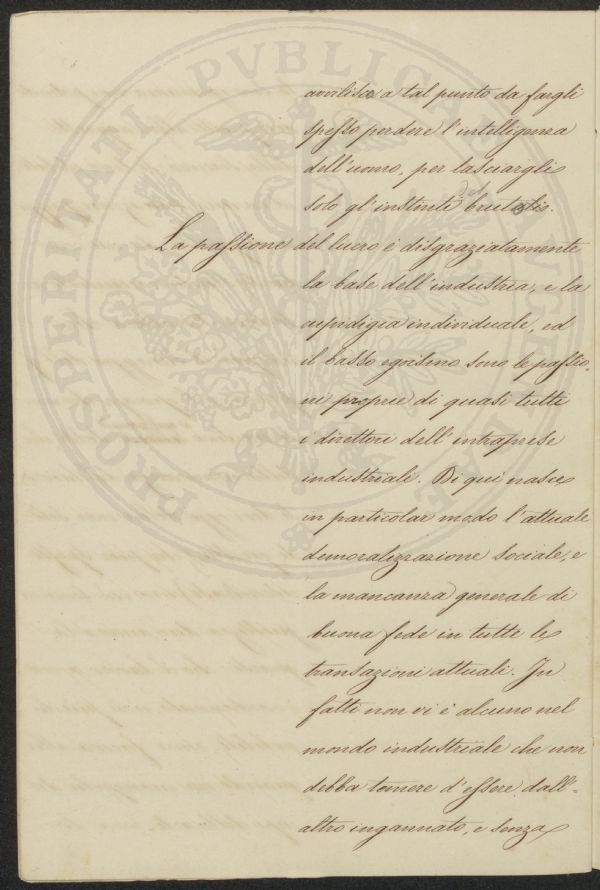 avvilisce a tal punto da fargli
spesso perdere l'intelligenza
dell'uomo, per lasciargli
solo gl'instinti del bruto.
La passione del lucro è disgraziatamente
la base dell'industria, e la
cupidigia individuale, ed
il basso egoismo sono le passio-
ni proprie di quasi tutti
i direttori dell'intraprese
industriali. Di qui nasce
in particolar modo l'attuale
demoralizzazione sociale, e
la mancanza generale di
buona fede in tutte le
transazioni attuali. In
fatti non vi è alcuno nel
mondo industriale che non
debba temere d'essere dall'
altro ingannato, e senza
PROSPERITATI PVBLICAE AVGENDAE